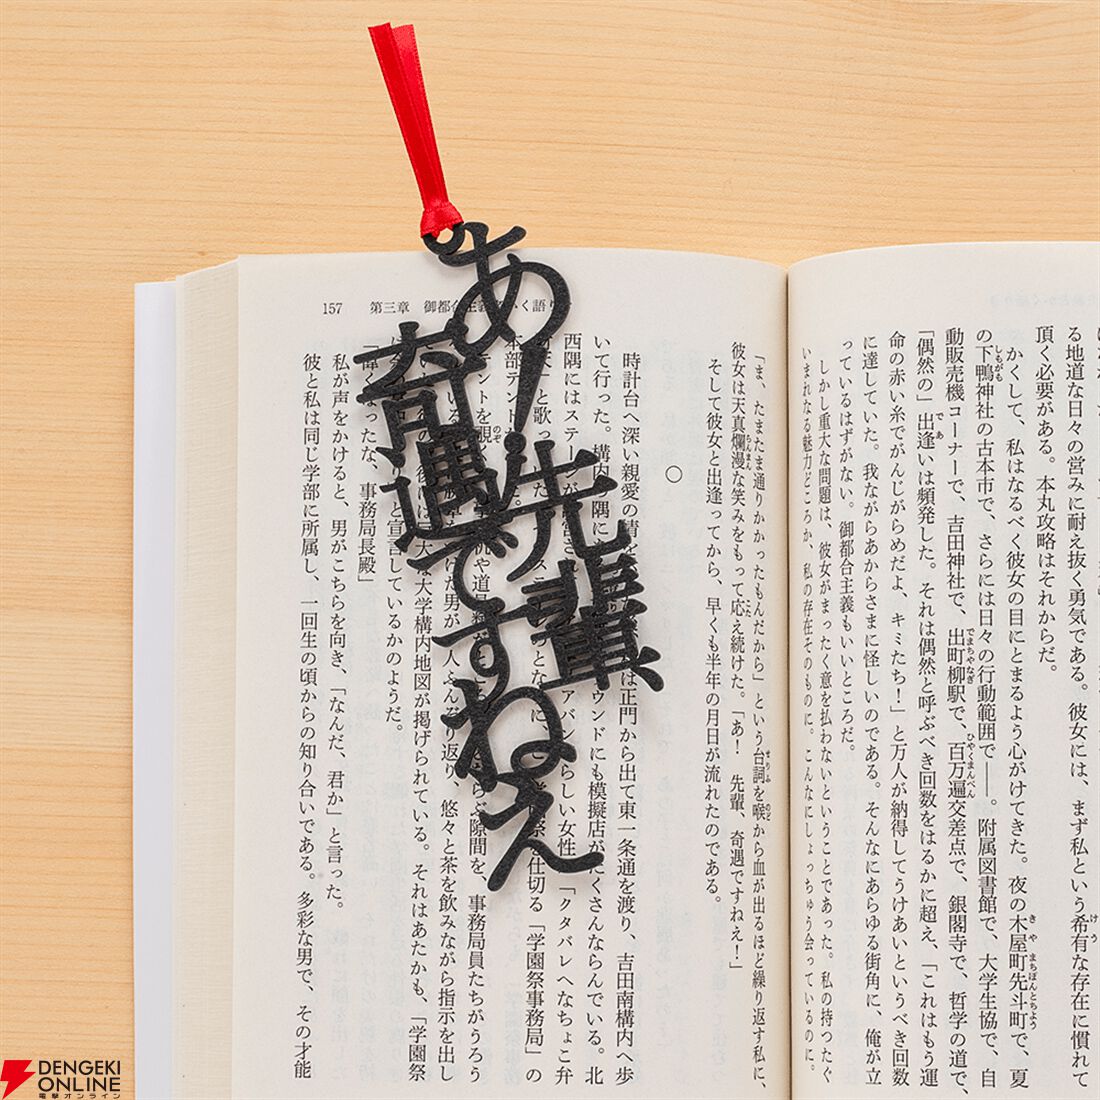 る地道な日々の営みに耐え抜く勇気である。彼女には、まず私という希有な存在に慣れて
頂く必要がある。本丸攻略はそれからだ。
かくして、私はなるべく彼女の目にとまるよう心がけてきた。夜の木屋町先斗町で、夏
の下鴨神社の古本市で、さらには日々の行動範囲で——。附属図書館で、大学生協で、自
動販売機コーナーで、吉田神社で、出町柳駅で、百万遍交差点で、銀閣寺で、哲学の道で、
「偶然の」出逢いは頻発した。それは偶然と呼ぶべき回数をはるかに超え、「これはもう運
命の赤い糸でがんじがらめだよ、キミたち!」と万人が納得してうけあいというべき回数
に達していた。我ながらあからさまに怪しいのである。そんなにあらゆる街角に、俺が立
っているはずがない。御都合主義もいいところだ。
しかし重大な問題は、彼女がまったく意を払わないということであった。私の持つたぐ
いまれなる魅力どころか、私の存在そのものに。こんなにしょっちゅう会っているのに。
「ま、たまたま通りかかったもんだから」という台詞を喉から血が出るほど繰り返す私に、
彼女は天真爛漫な笑みをもって応え続けた。「あ! 先輩、奇遇ですねえ!」
そして彼女と出逢ってから、早くも半年の月日が流れたのである。
○
157 第三章 御都合主義
く語り
時計台へ深い親愛の情を
は正門から出て東一条通を渡り、吉田南構内へ歩
いて行った。構内
隅に
ウンドにも模擬店がたくさんならんでいる。北
西隅にはステー
アバン
らしい女性
「クタバレへなちょこ弁
と歌っ
を仕切る「学園祭事務局」の
本部テント
テントを覗
机や道
らぶ隙間を、事務局員たちがうろう
ている
男が
人ふんぞり返り、悠々と茶を飲みながら指示を出し
大な大学構内地図が掲げられている。それはあたかも、「学園祭
と宣言しているかのようだ。
「偉くなったな、事務局長殿」
私が声をかけると、男がこちらを向き、「なんだ、君か」と言った。
彼と私は同じ学部に所属し、一回生の頃からの知り合いである。多彩な男で、その才能
あ!先輩、
奇遇ですねえ
DENGEKI
ONLINE
電撃オンライン